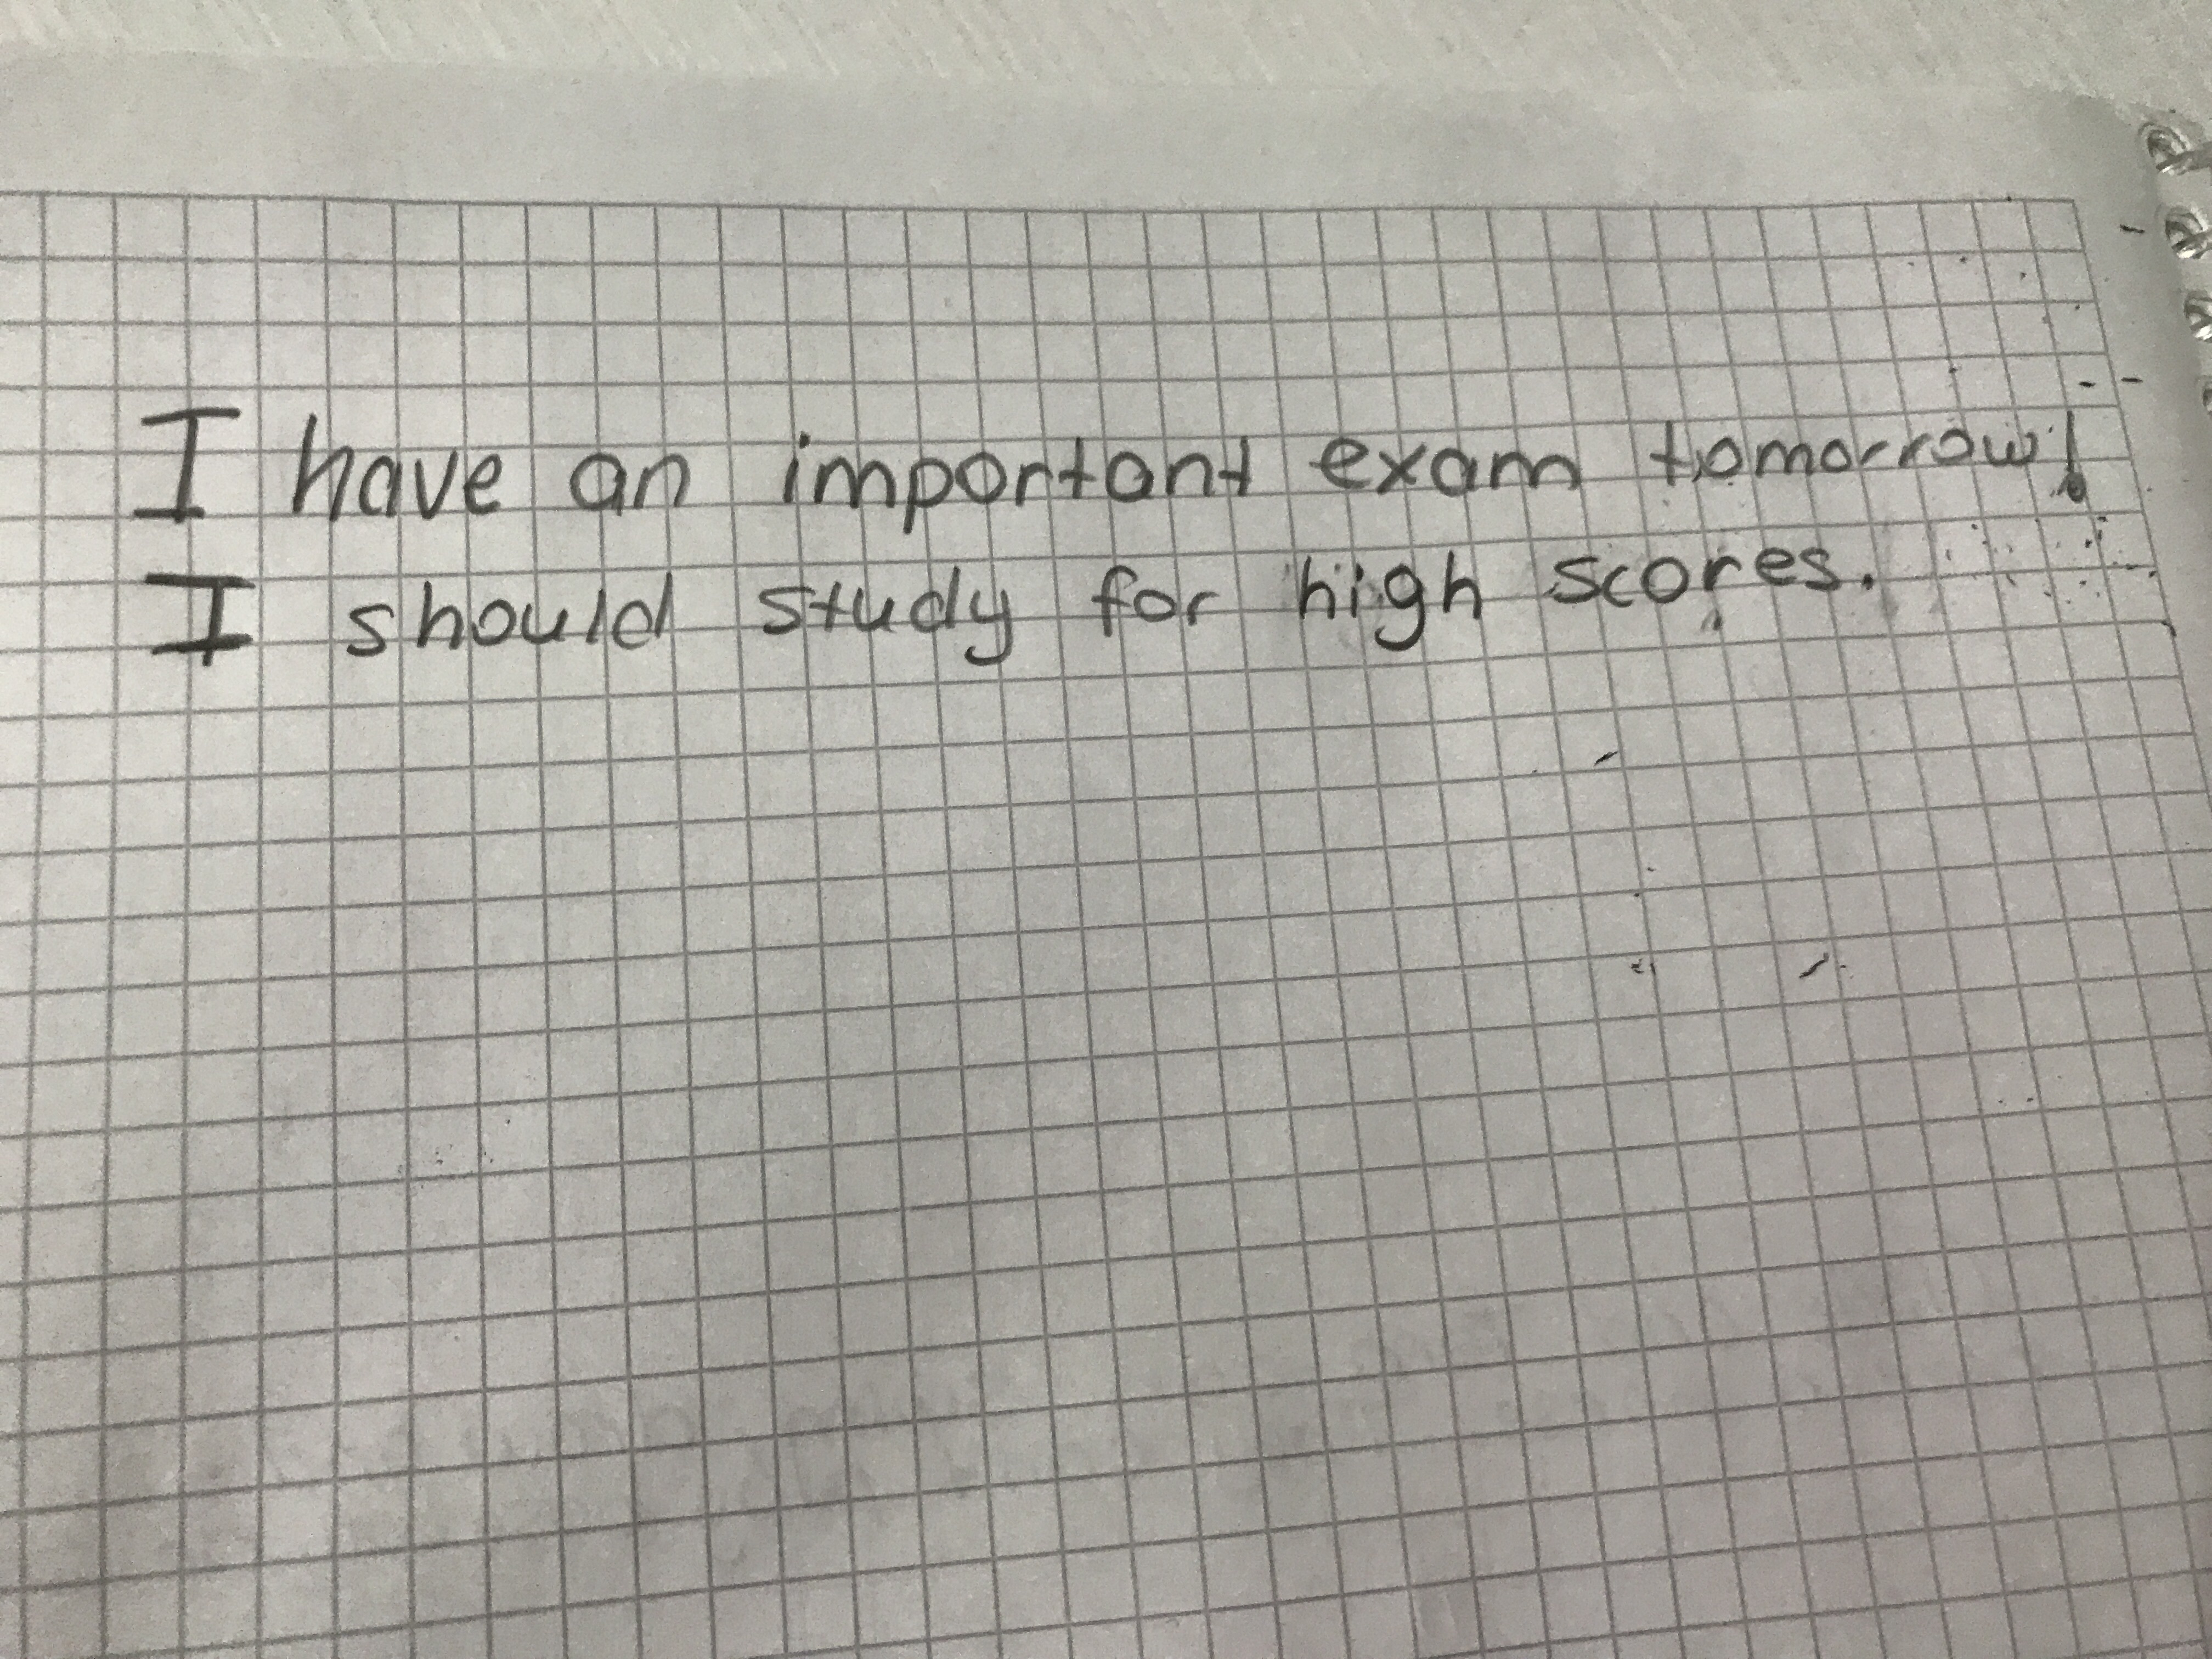 I have an important exam tomorrow!
I should study for high scores.